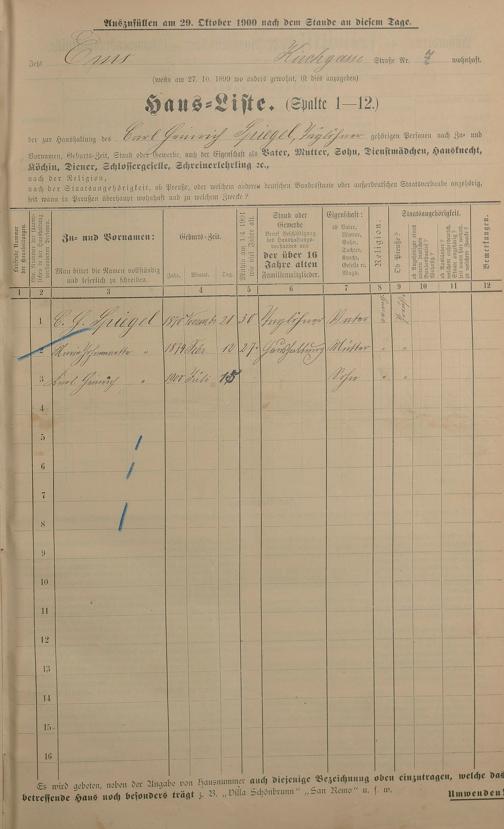 Auszufüllen am 29. Oktober 1900 nach dem Stande an diesem Tage.
Jetzt Ems Kirchgasse Straße Nr. 7 wohnhaft.
(welche am 27. 10. 1899 wo anders gewohnt, ist dies anzugeben)
Haus-Liste. (Spalte 1—12.)
der zur Haushaltung des Carl Heinrich Spiegel, Taglöhner gehörigen Personen nach Zu- und
Vornamen, Geburts-Zeit, Stand oder Gewerbe, nach der Eigenschaft als Vater, Mutter, Sohn, Dienstmädchen, Hausknecht,
Köchin, Diener, Schlossergeselle, Schreinerlehrling ꝛc.,
nach der Religion,
nach der Staatsangehörigkeit, ob Preuße, oder welchem anderen deutschen Bundesstaate oder außerdeutschen Staatsverbande angehörig,
seit wann in Preußen überhaupt wohnhaft und zu welchem Zwecke?
Zu- und Vornamen:
Man bittet die Namen vollständig
und leserlich zu schreiben.
Geburts-Zeit.
Jahr. Monat. Tag.
Stand oder
Gewerbe
der über 16
Jahre alten
Familienmitglieder.
Eigenschaft:
ob Vater,
Mutter,
Sohn,
Tochter,
Knecht,
Geselle u.
Magd.
Religion.
Staatsangehörigkeit.
Ob Preuße?
Bemerkungen.
1 2 3 4 5 6 7 8 9 10 11 12
1 C. H. Spiegel 1870 21 30 Taglöhner Vater
2 " 1874 10 27 Haushaltung Mutter " "
3 Karl Heinrich " 1900 Juli 15 Sohn " "
4
5
6
7
8
9
10
11
12
13
14
15
16
Es wird gebeten, neben der Angabe von Hausnummer auch diejenige Bezeichnung oben einzutragen, welche das
betreffende Haus noch besonders trägt z. B. „Villa Schönbrunn" „San Remo" u. s. w.
Umwenden!